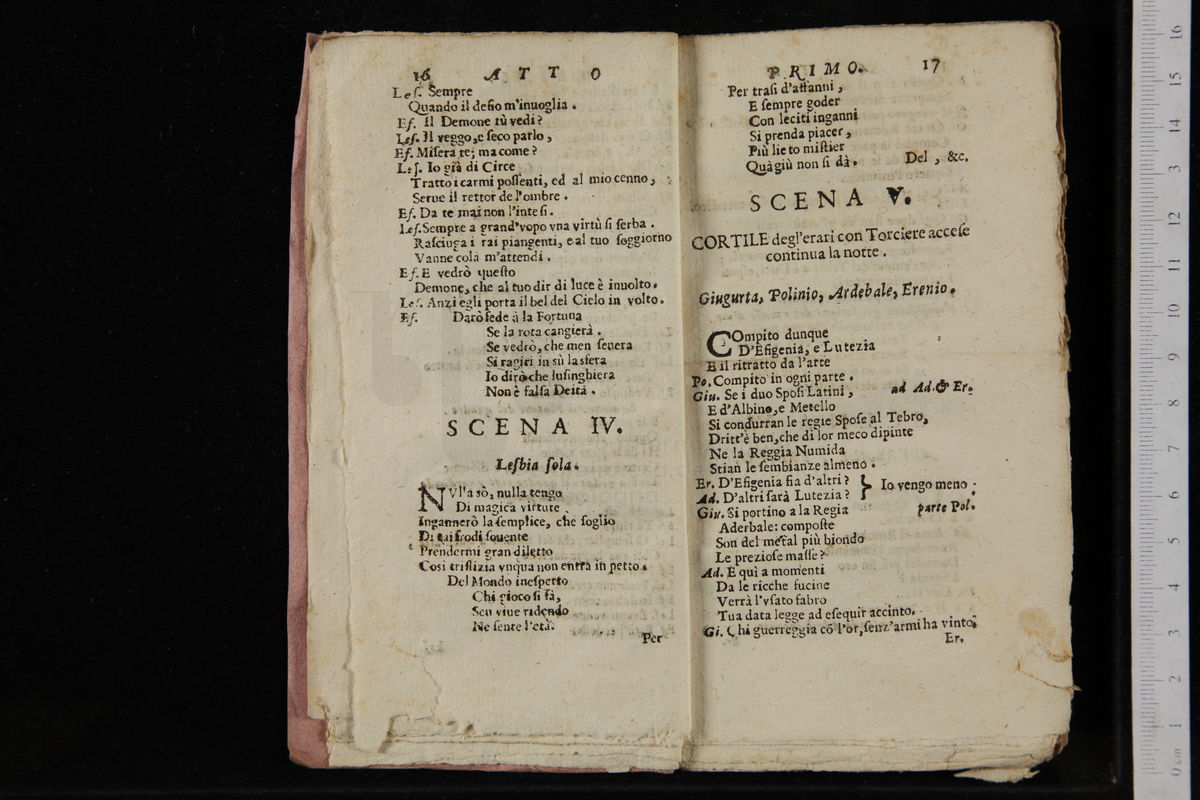 16 ATTO
Leſ. Sempre
Quando il deſio m'inuoglia.
Eſ. Il Demone tù vedi?
Leſ. Il veggo, e ſeco parlo,
Eſ. Miſera te; ma come?
Leſ. Io già di Circe
Tratto i carmi poſſenti, ed al mio cenno,
Serue il rettor de l'ombre.
Eſ. Da te mai non l'inteſi.
Leſ. Sempre a grand'vopo vna virtù ſi ſerba.
Raſciuga i rai piangenti, e al tuo ſoggiorno
Vanne colà m'attendi.
Eſ. E vedrò queſto
Demone, che al tuo dir di luce è inuolto.
Leſ. Anzi egli porta il bel del Cielo in volto.
Eſ. Darò fede à la Fortuna
Se la rota cangierà.
Se vedrò, che men ſeuera
Si ragiri in sù la sfera
Io dirò che luſinghiera
Non è falſa Deità.
SCENA IV.
Lesbia ſola.
NVl'a sò, nulla tengo
Di magica virtute
Ingannerò la ſemplice, che ſoglio
Di tai frodi ſouente
Prendermi gran diletto
Così triſtizia vnqua non entra in petto.
Del Mondo ineſperto
Chi gioco ſi fà,
Sen viue ridendo
Ne ſente l'età.
Per
PRIMO. 17
Per traſi d'affanni,
E ſempre goder
Con leciti inganni
Si prenda piacer,
Più lieto miſtier
Quà giù non ſi dà. Del, &c.
SCENA V.
CORTILE degl'erari con Torciere acceſe
continua la notte.
Giugurta, Polinio, Ardebale, Erenio.
COmpito dunque
D'Efigenia, e Lutezia
E il ritratto da l'arte
Po. Compito in ogni parte.
Giu. Se i duo Spoſi Latini, ad Ad. & Er.
E d'Albino, e Metello
Si condurran le regie Spoſe al Tebro,
Dritt'è ben, che di lor meco dipinte
Ne la Reggia Numida
Stian le ſembianze almeno.
Er. D'Efigenia fia d'altri? } Io vengo meno
Ad. D'altri ſarà Lutezia?
Giu. Si portino a la Regia parte Pol.
Aderbale: compoſte
Son del metal più biondo
Le prezioſe maſſe?
Ad. E quì a momenti
Da le ricche fucine
Verrà l'vſato fabro
Tua data legge ad eſequir accinto.
Gi. Chi guerreggia cõ l'or, ſenz'armi ha vinto.
Er.